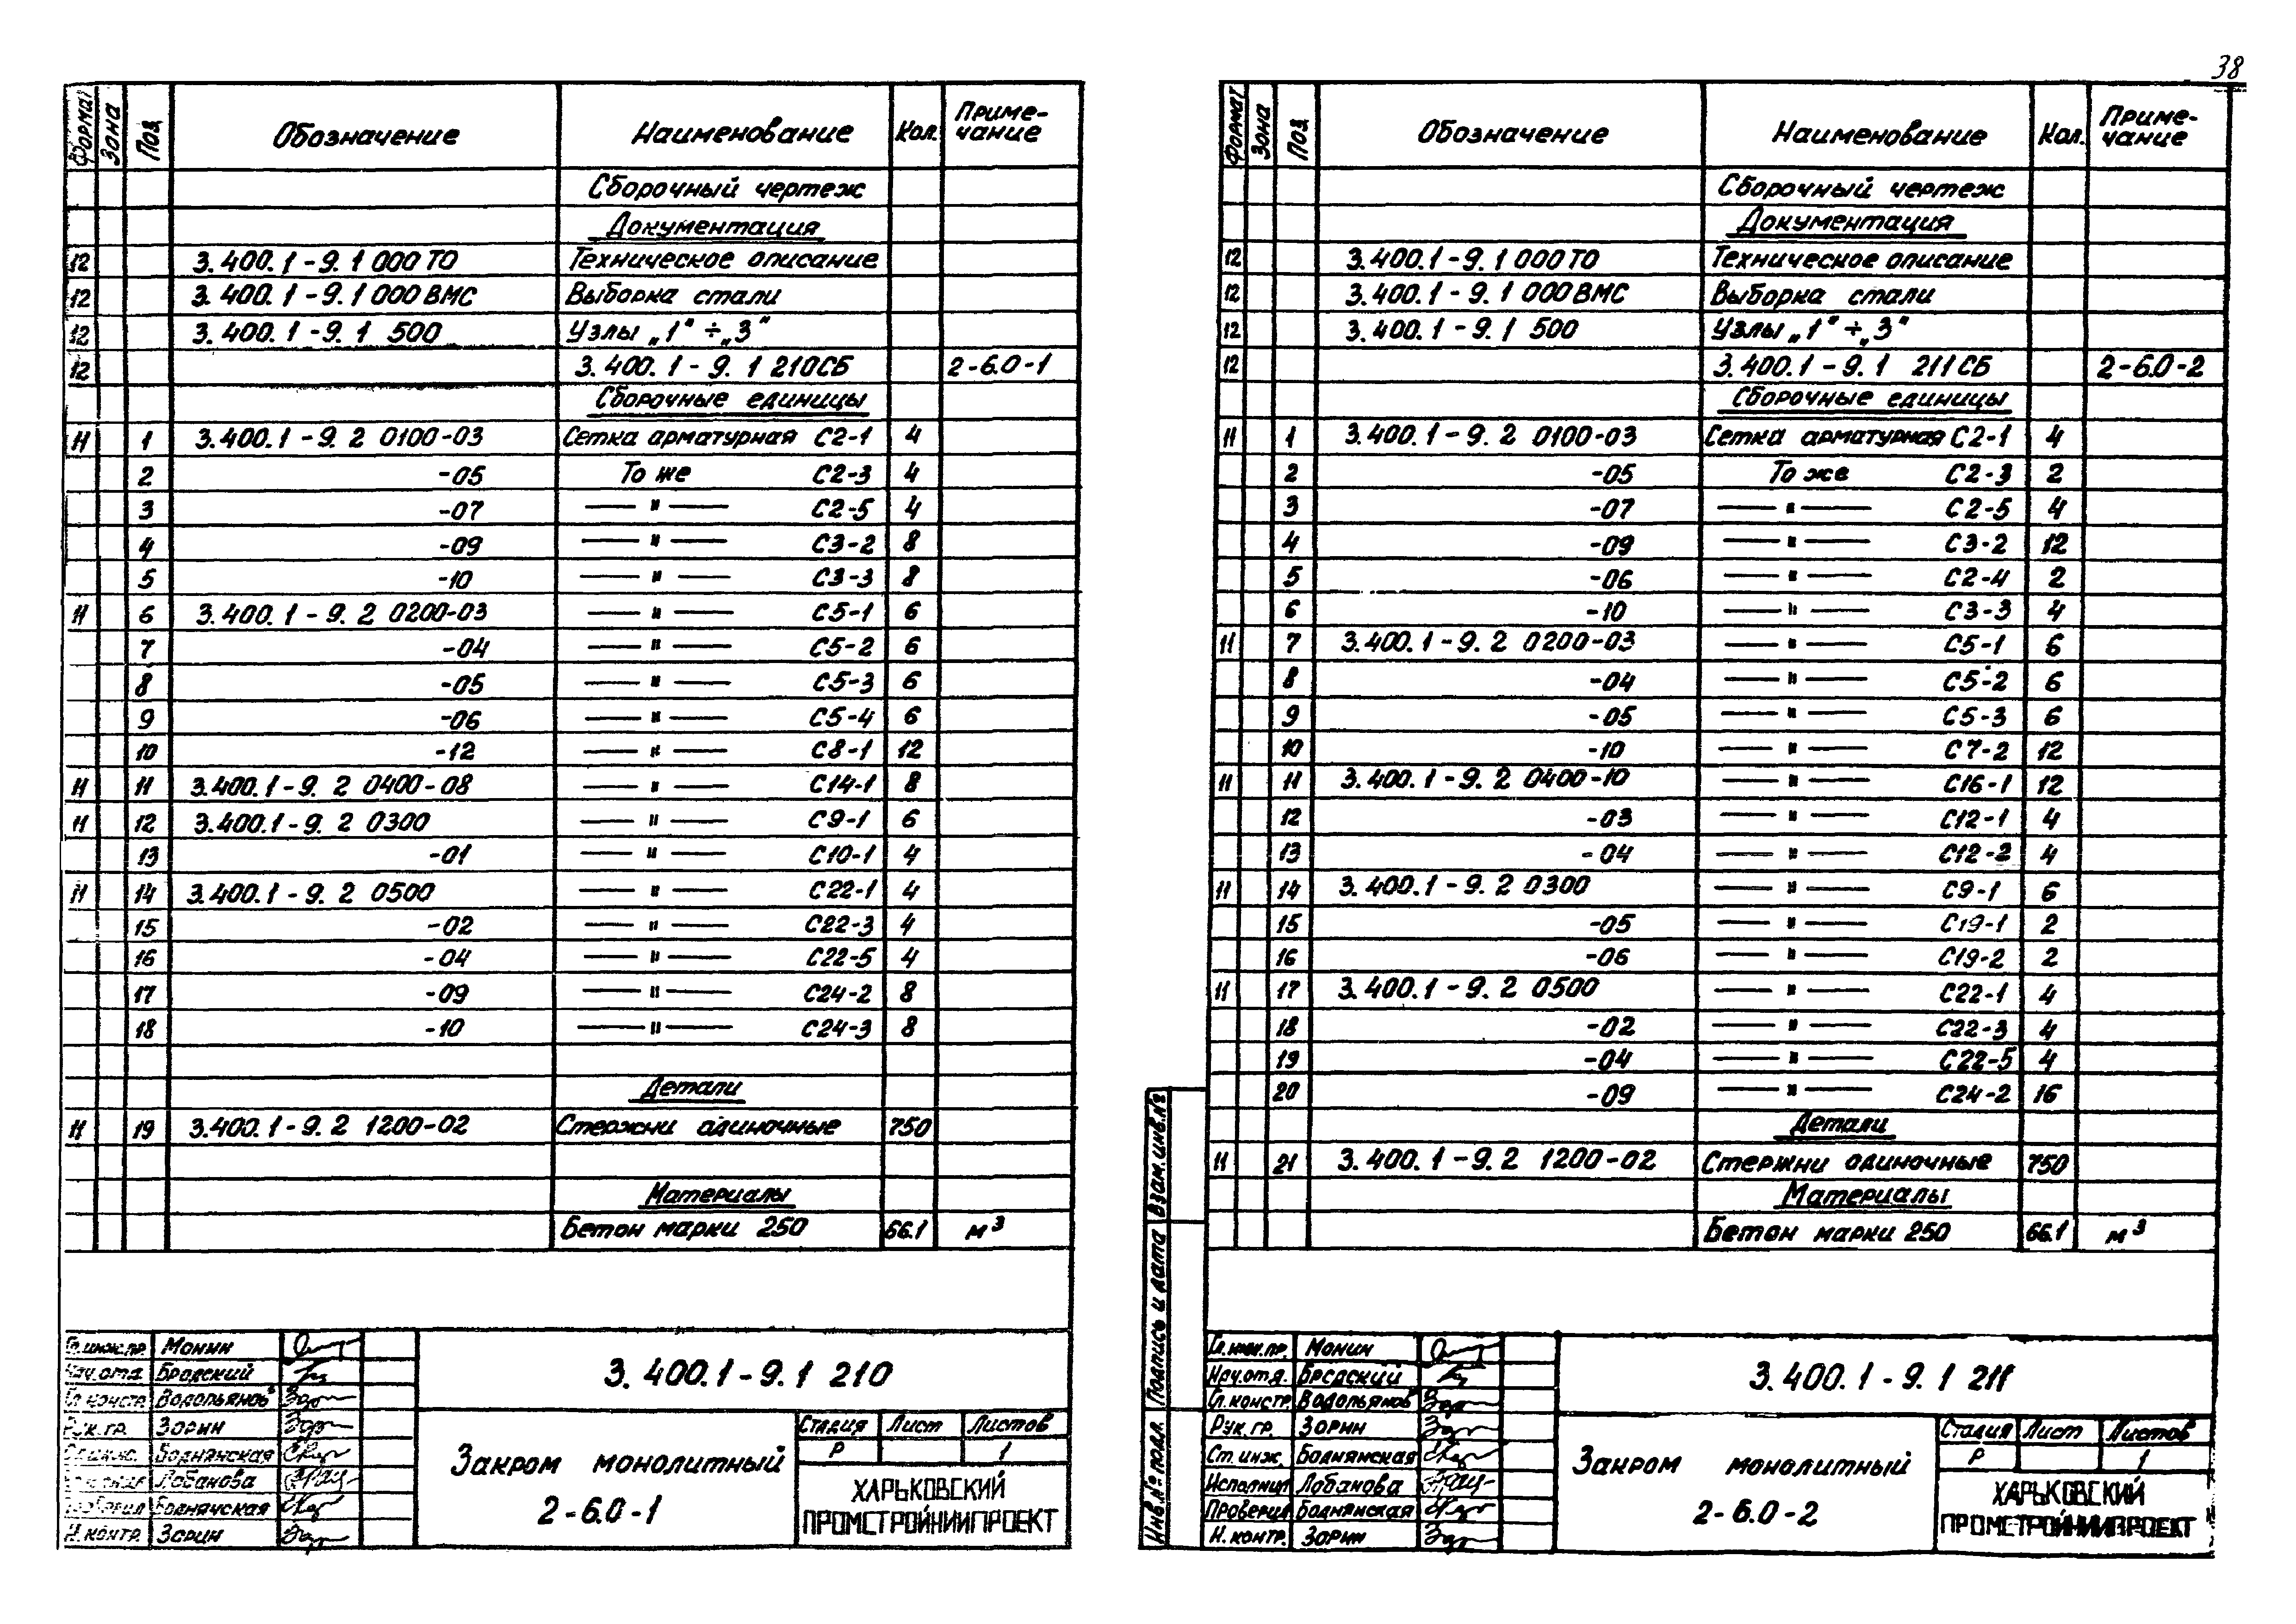 38
Формат Зона Поз. Обозначение Наименование Кол. Приме-
чание
Сборочный чертеж
Документация
12 3.400.1-9.1 000 ТО Техническое описание
12 3.400.1-9.1 000 ВМС Выборка стали
12 3.400.1-9.1 500 Узлы „1" ÷ „3"
12 3.400.1-9.1 210СБ 2-6.0-1
Сборочные единицы
11 1 3.400.1-9.2 0100-03 Сетка арматурная С2-1 4
2 -05 То же С2-3 4
3 -07 — " — С2-5 4
4 -09 — " — С3-2 8
5 -10 — " — С3-3 8
11 6 3.400.1-9.2 0200-03 — " — С5-1 6
7 -04 — " — С5-2 6
8 -05 — " — С5-3 6
9 -06 — " — С5-4 6
10 -12 — " — С8-1 12
11 11 3.400.1-9.2 0400-08 — " — С14-1 8
11 12 3.400.1-9.2 0300 — " — С9-1 6
13 -01 — " — С10-1 4
11 14 3.400.1-9.2 0500 — " — С22-1 4
15 -02 — " — С22-3 4
16 -04 — " — С22-5 4
17 -09 — " — С24-2 8
18 -10 — " — С24-3 8
Детали
11 19 3.400.1-9.2 1200-02 Стержни одиночные 750
Материалы
Бетон марки 250 66.1 м³
Гл.инж.пр. Монин
Нач.отд. Бродский
Гл.констр. Водопьянов
Рук.гр. Зорин
Ст.инж. Боднянская
Лобанова
Боднянская
Н.контр. Зорин
3.400.1-9.1 210
Закром монолитный
2-6.0-1
Стадия Лист Листов
Р 1
ХАРЬКОВСКИЙ
ПРОМСТРОЙНИИПРОЕКТ
Формат Зона Поз. Обозначение Наименование Кол. Приме-
чание
Сборочный чертеж
Документация
12 3.400.1-9.1 000 ТО Техническое описание
12 3.400.1-9.1 000 ВМС Выборка стали
12 3.400.1-9.1 500 Узлы „1" ÷ „3"
12 3.400.1-9.1 211СБ 2-6.0-2
Сборочные единицы
11 1 3.400.1-9.2 0100-03 Сетка арматурная С2-1 4
2 -05 То же С2-3 2
3 -07 — " — С2-5 4
4 -09 — " — С3-2 12
5 -06 — " — С2-4 2
6 -10 — " — С3-3 4
11 7 3.400.1-9.2 0200-03 — " — С5-1 6
8 -04 — " — С5-2 6
9 -05 — " — С5-3 6
10 -10 — " — С7-2 12
11 11 3.400.1-9.2 0400-10 — " — С16-1 12
12 -03 — " — С12-1 4
13 -04 — " — С12-2 4
11 14 3.400.1-9.2 0300 — " — С9-1 6
15 -05 — " — С19-1 2
16 -06 — " — С19-2 2
11 17 3.400.1-9.2 0500 — " — С22-1 4
18 -02 — " — С22-3 4
19 -04 — " — С22-5 4
20 -09 — " — С24-2 16
Детали
11 21 3.400.1-9.2 1200-02 Стержни одиночные 750
Материалы
Бетон марки 250 66.1 м³
Инв.№ подл. Подпись и дата Взам.инв.№
Гл.инж.пр. Монин
Нач.отд. Бродский
Гл.констр. Водопьянов
Рук.гр. Зорин
Ст.инж. Боднянская
Исполнил Лобанова
Проверил Боднянская
Н.контр. Зорин
3.400.1-9.1 211
Закром монолитный
2-6.0-2
Стадия Лист Листов
Р 1
ХАРЬКОВСКИЙ
ПРОМСТРОЙНИИПРОЕКТ